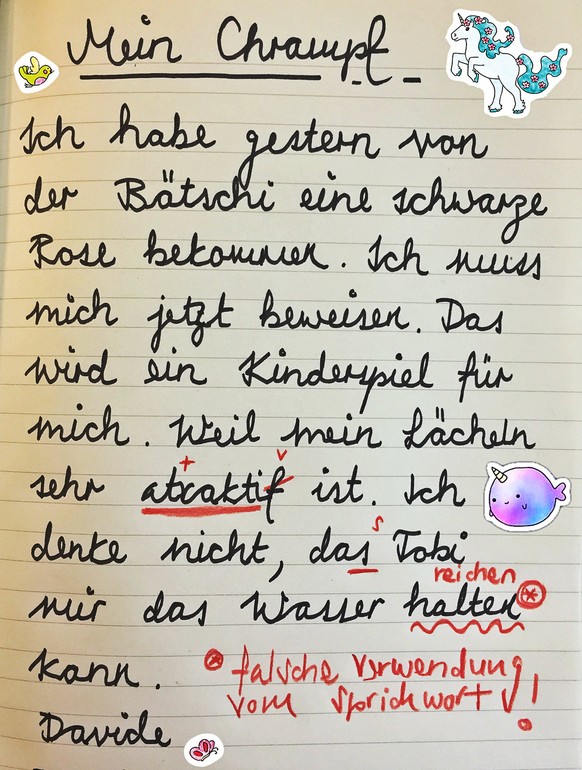 Mein Chrampf
Ich habe gestern von
der Bätschi eine schwarze
Rose bekommen. Ich muss
mich jetzt beweisen. Das
wird ein Kinderspiel für
mich. Weil mein Lächeln
+ v
sehr atraktif ist. Ich
s
denke nicht, das Tobi
reichen
mir das Wasser halten *
kann. * falsche Verwendung
vom Sprichwort!
Davide